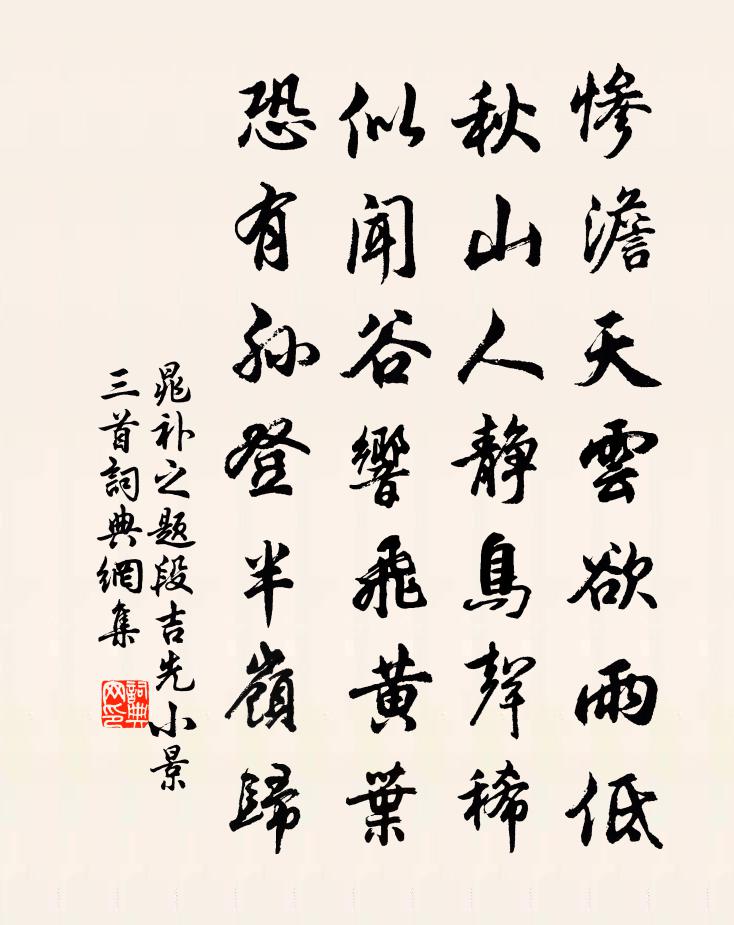 慘澹天雲欲雨低
秋山人靜鳥聲稀
似聞谷響飛黃葉
恐有孫登半嶺歸
晁补之题段吉先小景
三首詞典網集
詞典网印